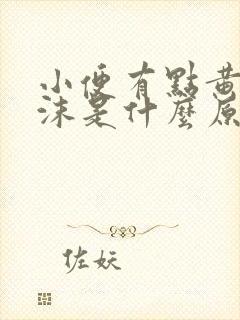 小便有點黃
沫是什麼原
佐妖